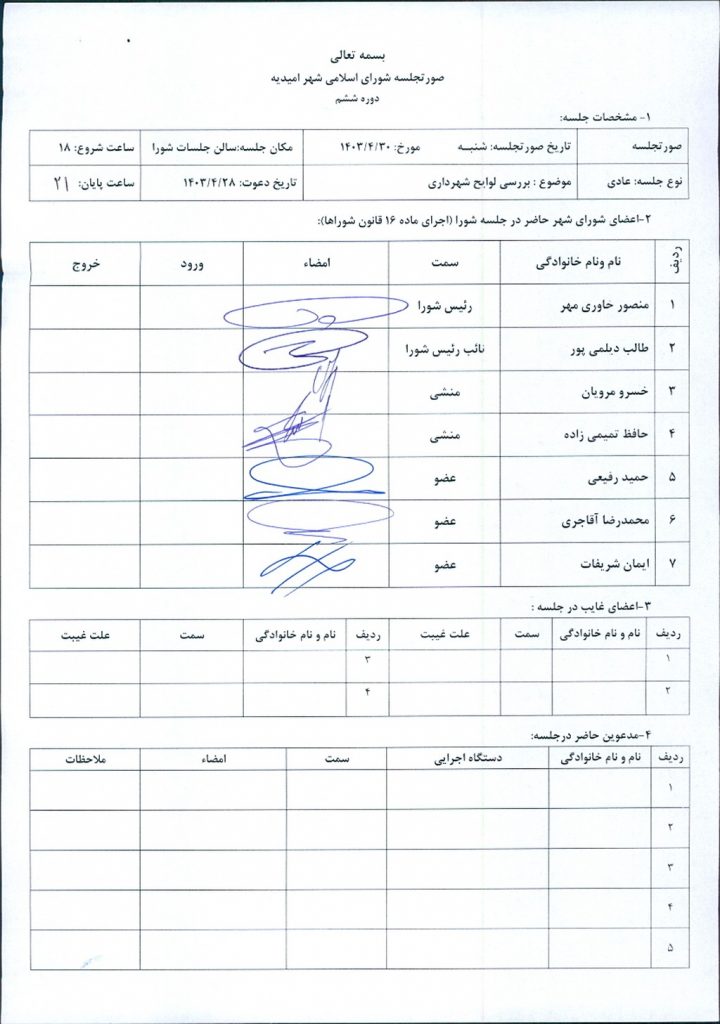 بسمه تعالی
صورتجلسه شورای اسلامی شهر امیدیه
دوره ششم
۱- مشخصات جلسه:
صورتجلسه تاریخ صورتجلسه: شنبــه مورخ: ۱۴۰۳/۴/۳۰ مکان جلسه:سالن جلسات شورا ساعت شروع: ۱۸
نوع جلسه: عادی موضوع : بررسی لوایح شهرداری تاریخ دعوت: ۱۴۰۳/۴/۲۸ ساعت پایان: ۲۱
۲-اعضای شورای شهر حاضر در جلسه شورا (اجرای ماده ۱۶ قانون شوراها):
ردیف نام ونام خانوادگی سمت امضاء ورود خروج
۱ منصور خاوری مهر رئیس شورا
۲ طالب دیلمی پور نائب رئیس شورا
۳ خسرو مرویان منشی
۴ حافظ تمیمی زاده منشی
۵ حمید رفیعی عضو
۶ محمدرضا آقاجری عضو
۷ ایمان شریفات عضو
۳-اعضای غایب در جلسه :
ردیف نام و نام خانوادگی سمت علت غیبت ردیف نام و نام خانوادگی سمت علت غیبت
۱ ۳
۲ ۴
۴-مدعوین حاضر درجلسه:
ردیف نام و نام خانوادگی دستگاه اجرایی سمت امضاء ملاحظات
۱
۲
۳
۴
۵